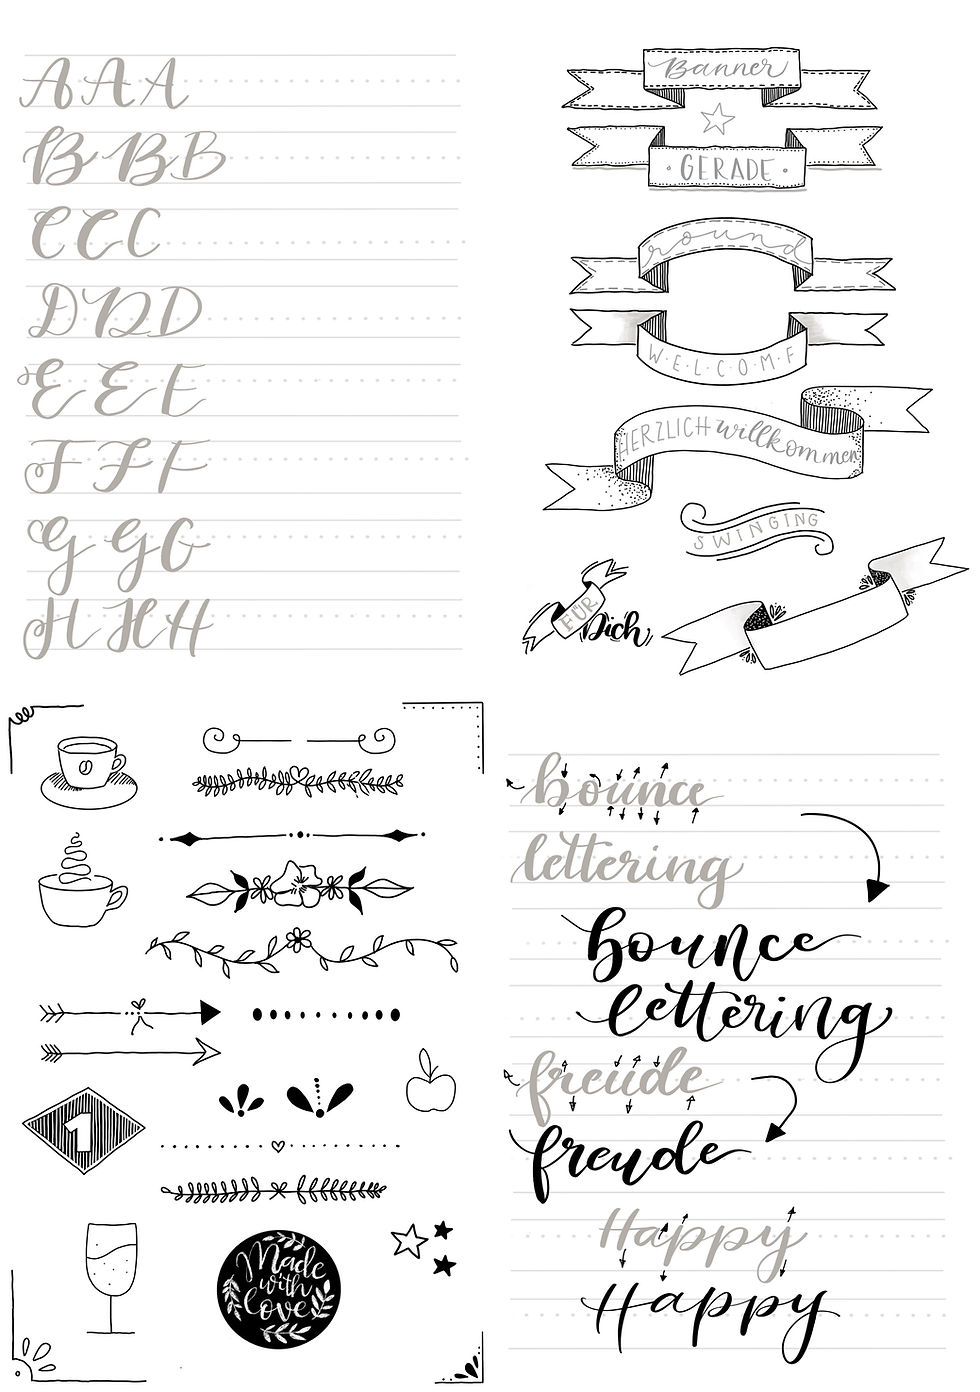 A A A
B B B
C C C
D D D
E E E
F F F
G G G
H H H
Banner
· GERADE ·
round
W·E·L·C·O·M·E
HERZLICH willkommen
SWINGING
FÜR
Dich
1
Made
with
love
bounce
lettering
bounce
lettering
freude
freude
Happy
Happy